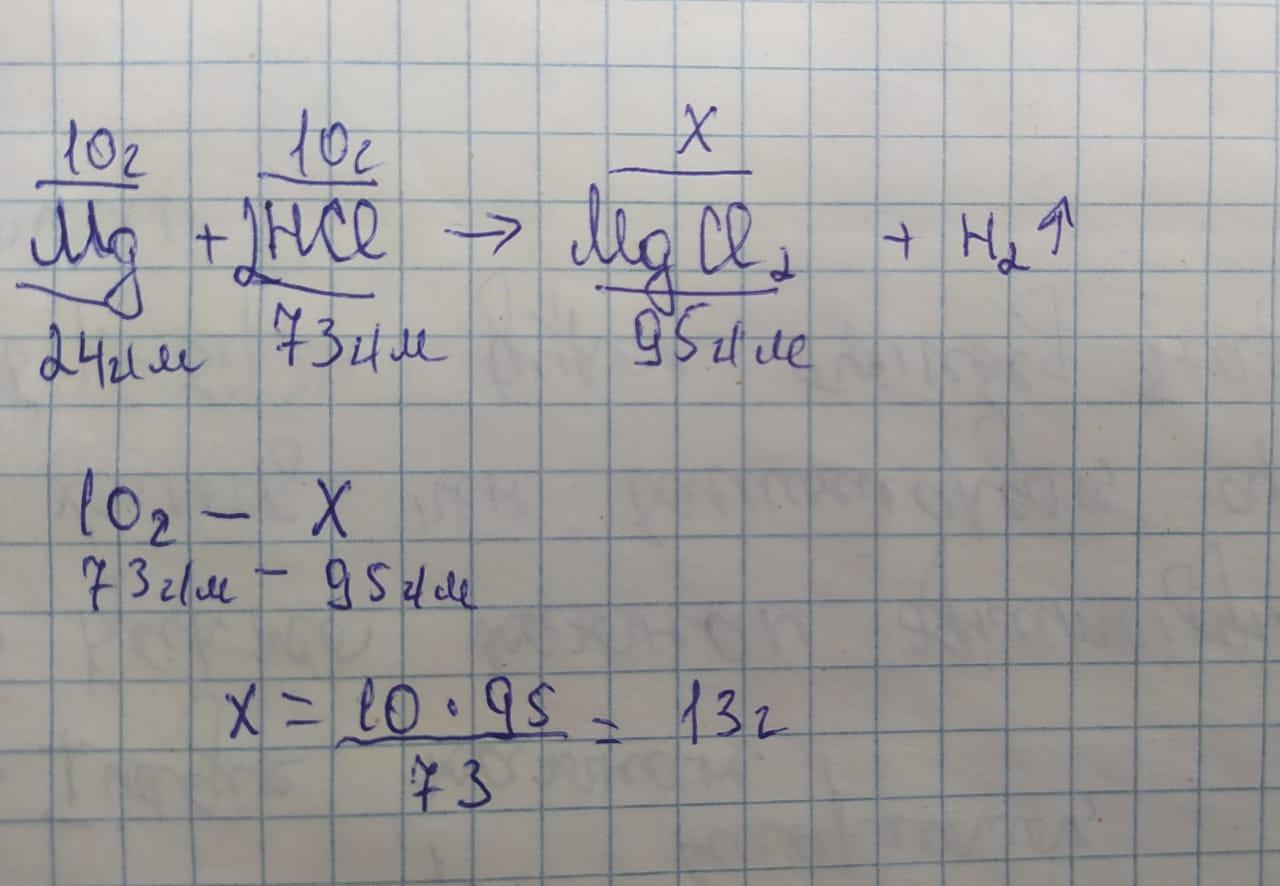 10г 10г X
Mg + 2HCl → MgCl₂ + H₂↑
24г/м 73г/м 95г/м
10г – X
73г/м – 95г/м
x = 10 · 95 / 73 = 13г